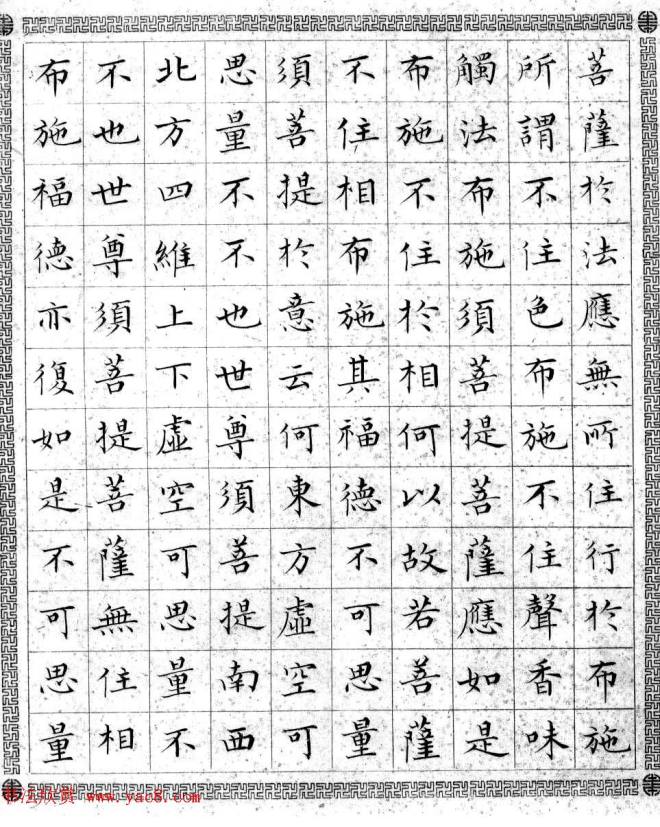 菩薩於法應無所住行於布施
所謂不住色布施不住聲香味
觸法布施須菩提菩薩應如是
布施不住於相何以故若菩薩
不住相布施其福德不可思量
須菩提於意云何東方虛空可
思量不不也世尊須菩提南西
北方四維上下虛空可思量不
不也世尊須菩提菩薩無住相
布施福德亦復如是不可思量
法欣赏 www.yac8.com